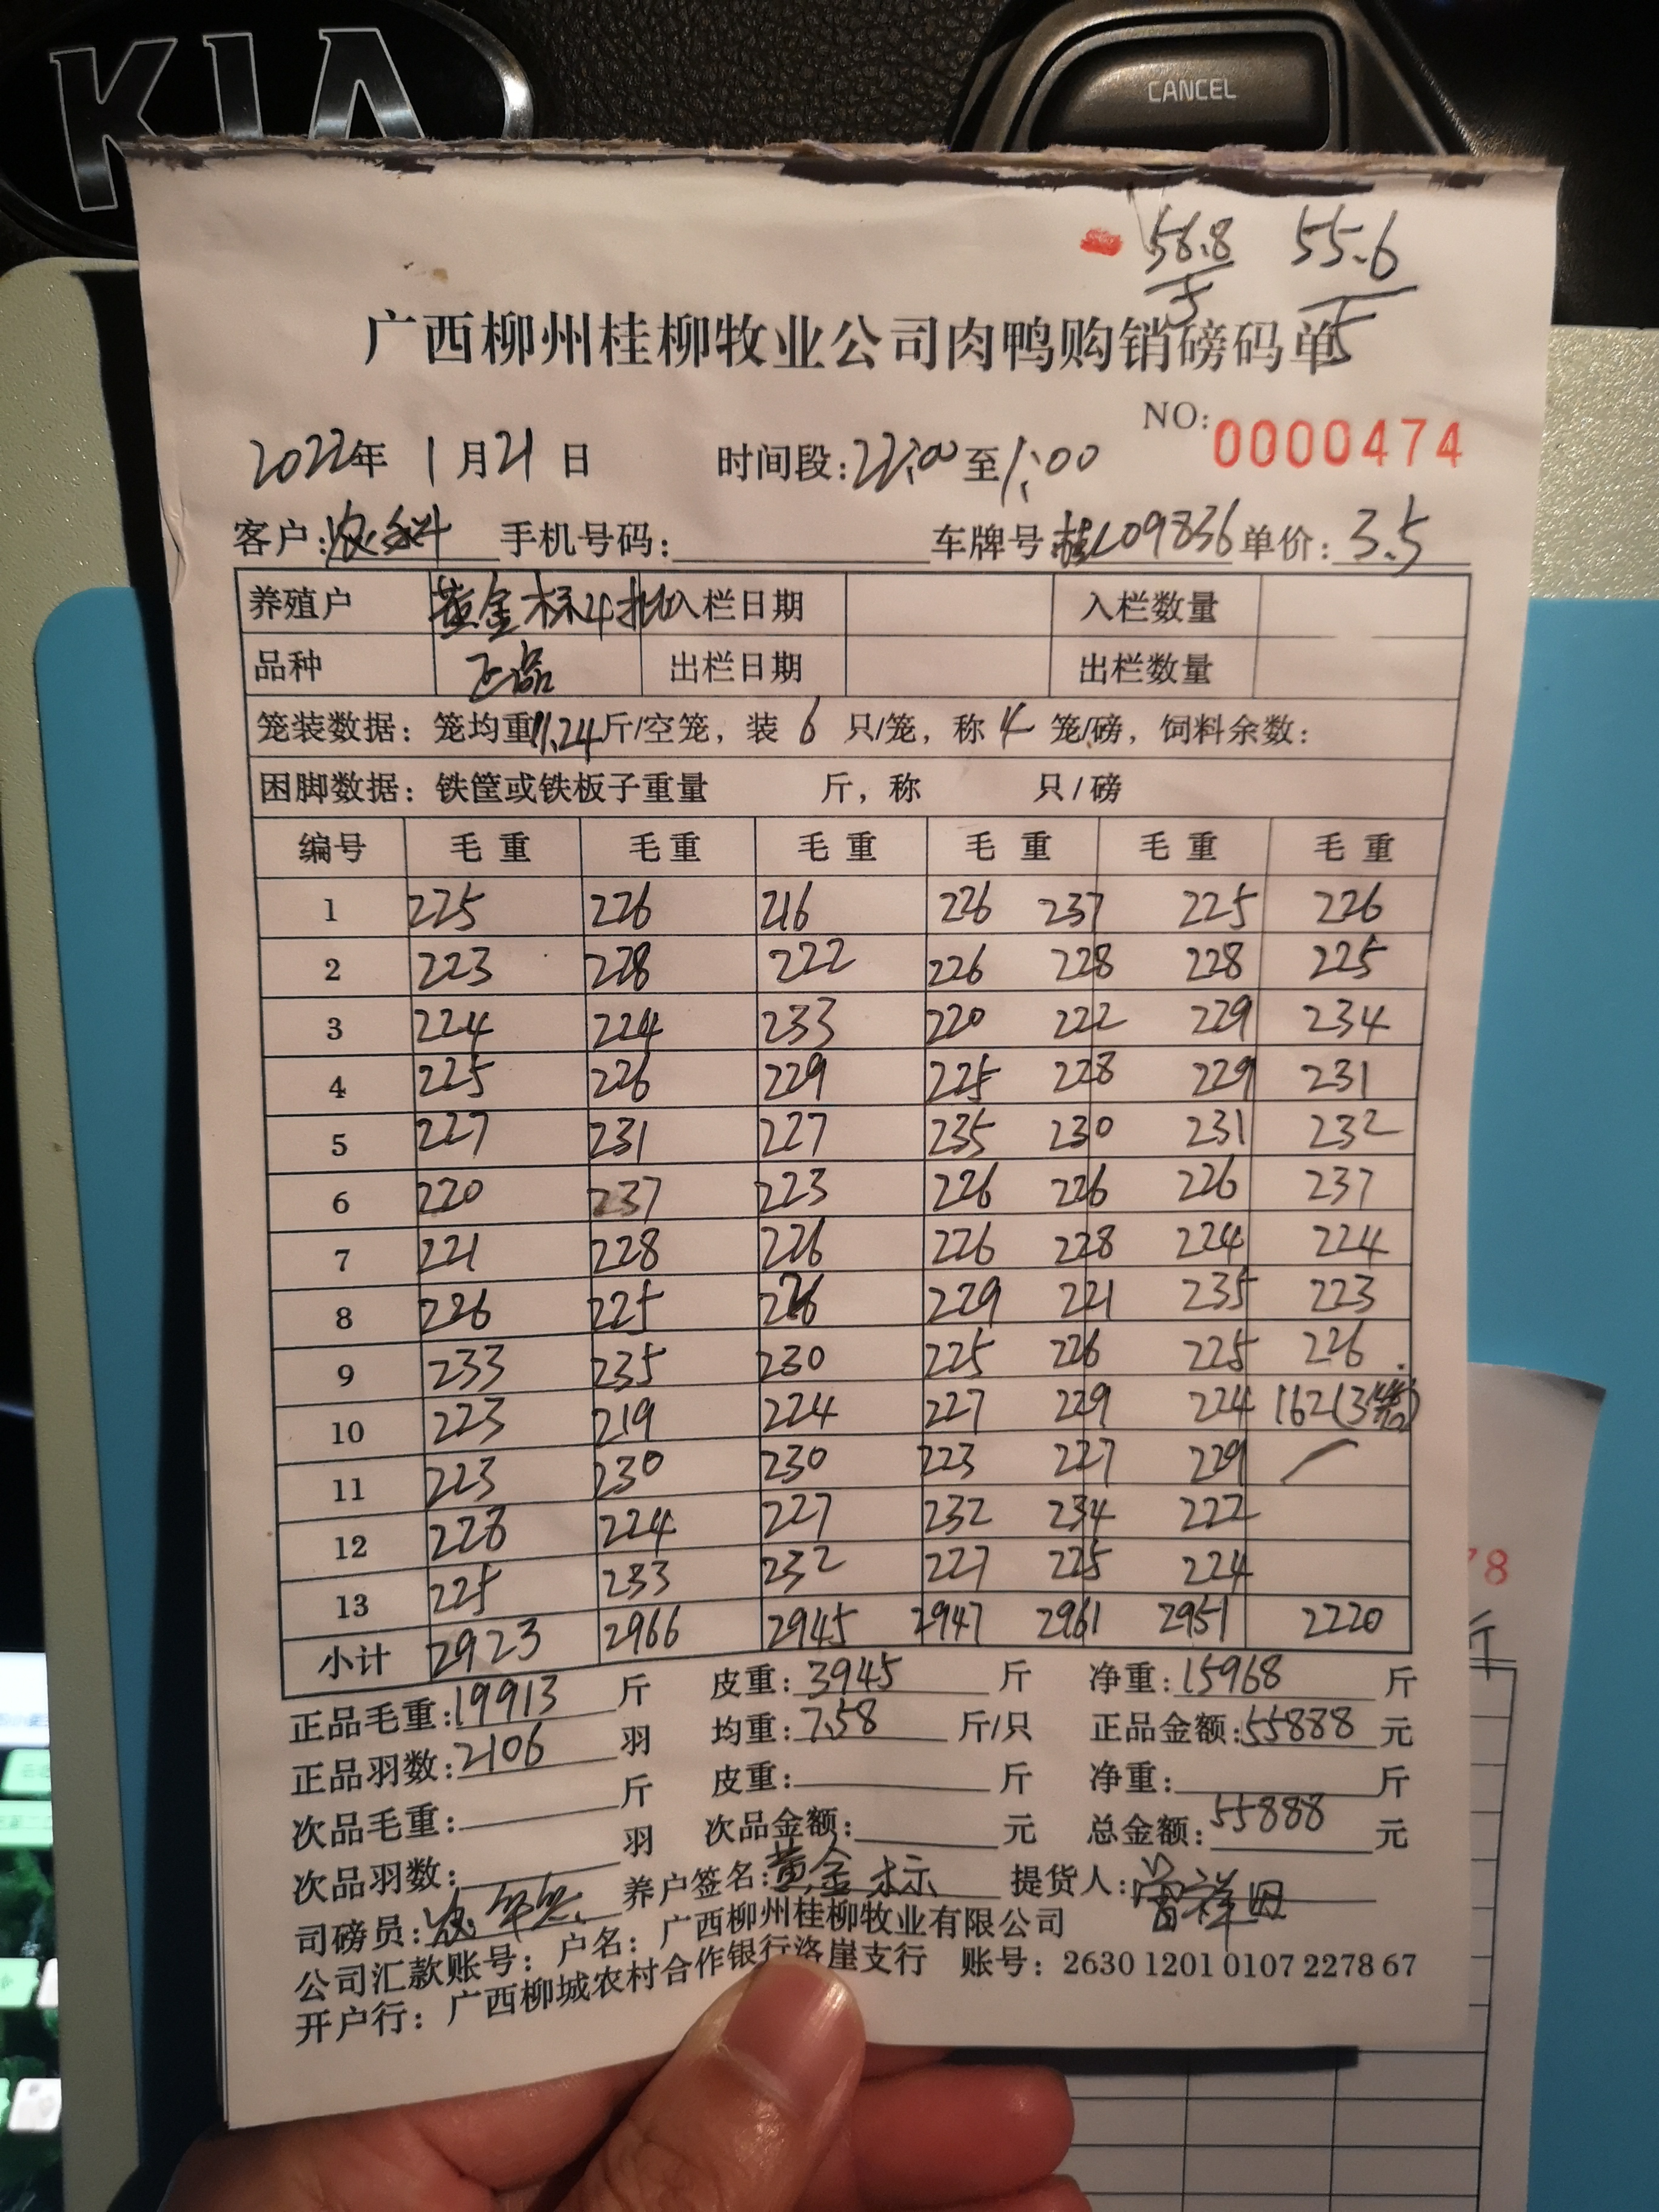 KIA
CANCEL
56.8 55.6
5 5
广西柳州桂柳牧业公司肉鸭购销磅码单
NO: 0000474
2022年 1月21日 时间段:22:00至1:00
客户: 手机号码: 车牌号桂L09836 单价: 3.5
养殖户 黄金标4批 入栏日期 入栏数量
品种 正品 出栏日期 出栏数量
笼装数据: 笼均重11.24斤/空笼, 装 6 只/笼, 称 4 笼/磅, 饲料余数:
困脚数据: 铁筐或铁板子重量 斤, 称 只/磅
编号 毛重 毛重 毛重 毛重 毛重 毛重
1 225 226 216 226 237 225 226
2 223 228 222 226 228 228 225
3 224 224 233 220 222 229 234
4 225 226 229 225 228 229 231
5 227 231 227 235 230 231 232
6 220 237 223 226 226 226 237
7 221 228 226 226 228 224 224
8 226 225 226 229 221 235 223
9 233 235 230 225 226 225 226
10 223 219 224 227 229 224 162(3笼)
11 223 230 230 223 227 229
12 228 224 227 232 234 222
13 225 233 232 227 225 224
小计 2923 2966 2945 2947 2961 2951 2220
正品毛重: 19913 斤 皮重: 3945 斤 净重: 15968 斤
正品羽数: 2106 羽 均重: 7.58 斤/只 正品金额: 55888 元
次品毛重: 斤 皮重: 斤 净重: 斤
次品羽数: 羽 次品金额: 元 总金额: 55888 元
司磅员: 养户签名: 黄金标 提货人:
公司汇款账号: 户名: 广西柳州桂柳牧业有限公司
开户行: 广西柳城农村合作银行洛崖支行 账号: 2630 1201 0107 2278 67
78
斤